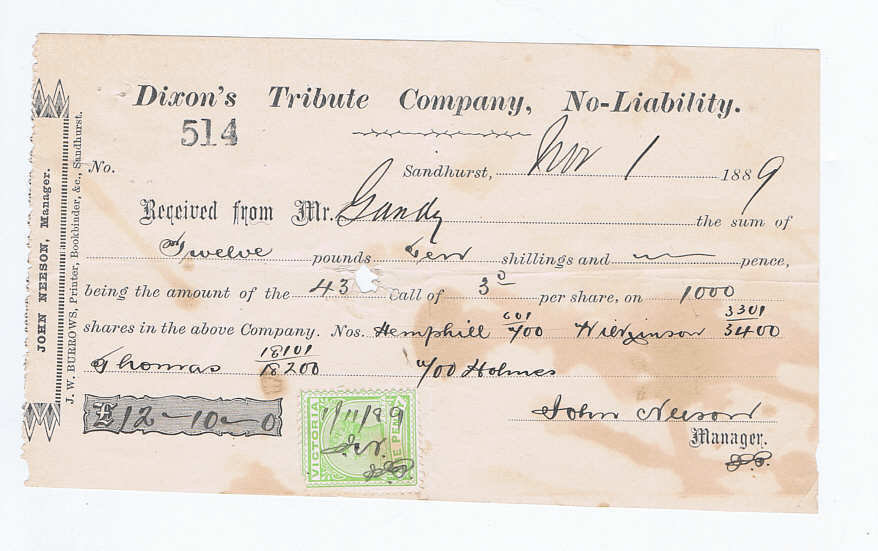 Dixon's Tribute Company, No-Liability.
514
No.
Sandhurst, Nov 1 1889
Received from Mr. Gandy the sum of
Twelve pounds Ten shillings and — pence,
being the amount of the 43 Call of 3D per share, on 1000
shares in the above Company. Nos. Hemphill 601/700 Wilkinson 3301/3400
Thomas 18101/18200 a/00 Holmes
£12-10-0
John Neeson
Manager.
VICTORIA
ONE PENNY
1/11/89
J.N.
JOHN NEESON, Manager.
J. W. BURROWS, Printer, Bookbinder, &c., Sandhurst.